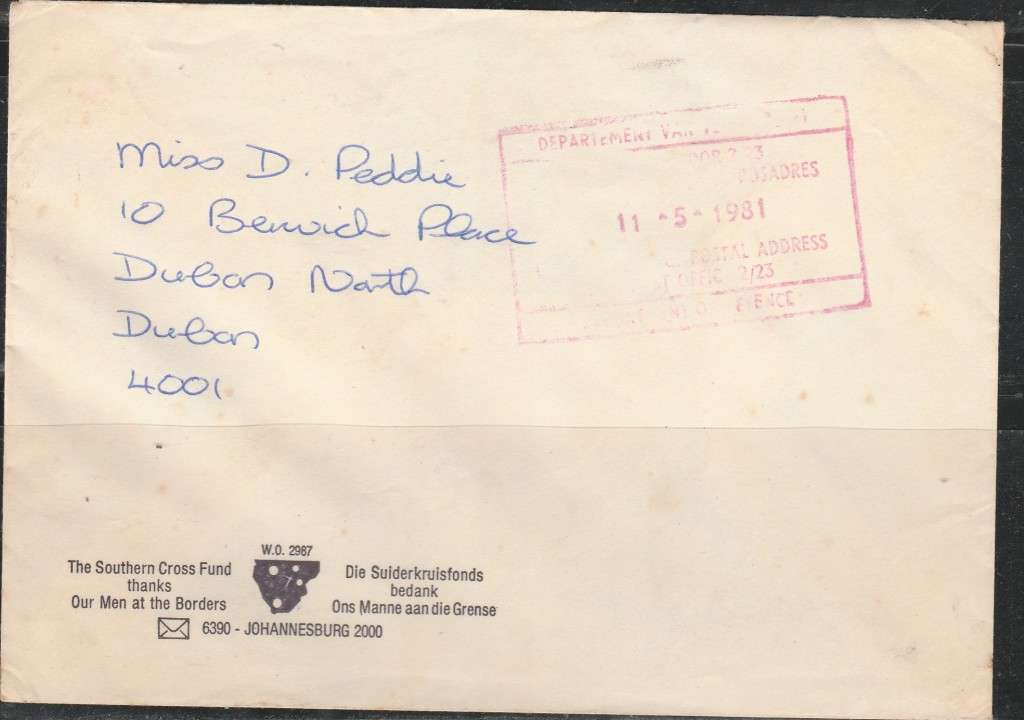 Miss D. Peddie
10 Berwick Place
Durban North
Durban
4001
DEPARTEMENT VAN
POSADRES
11 -5- 1981
POSTAL ADDRESS
2/23
W.O. 2987
The Southern Cross Fund
thanks
Our Men at the Borders
Die Suiderkruisfonds
bedank
Ons Manne aan die Grense
6390 - JOHANNESBURG 2000